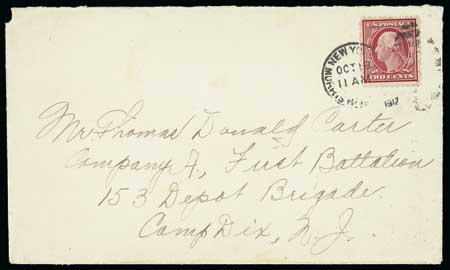 U.S. POSTAGE
TWO CENTS
NEW YO
OCT
11 AM
1917
Mr Thomas Donald Carter
Company A, First Battalion
153 Depot Brigade.
Camp Dix, N. J.